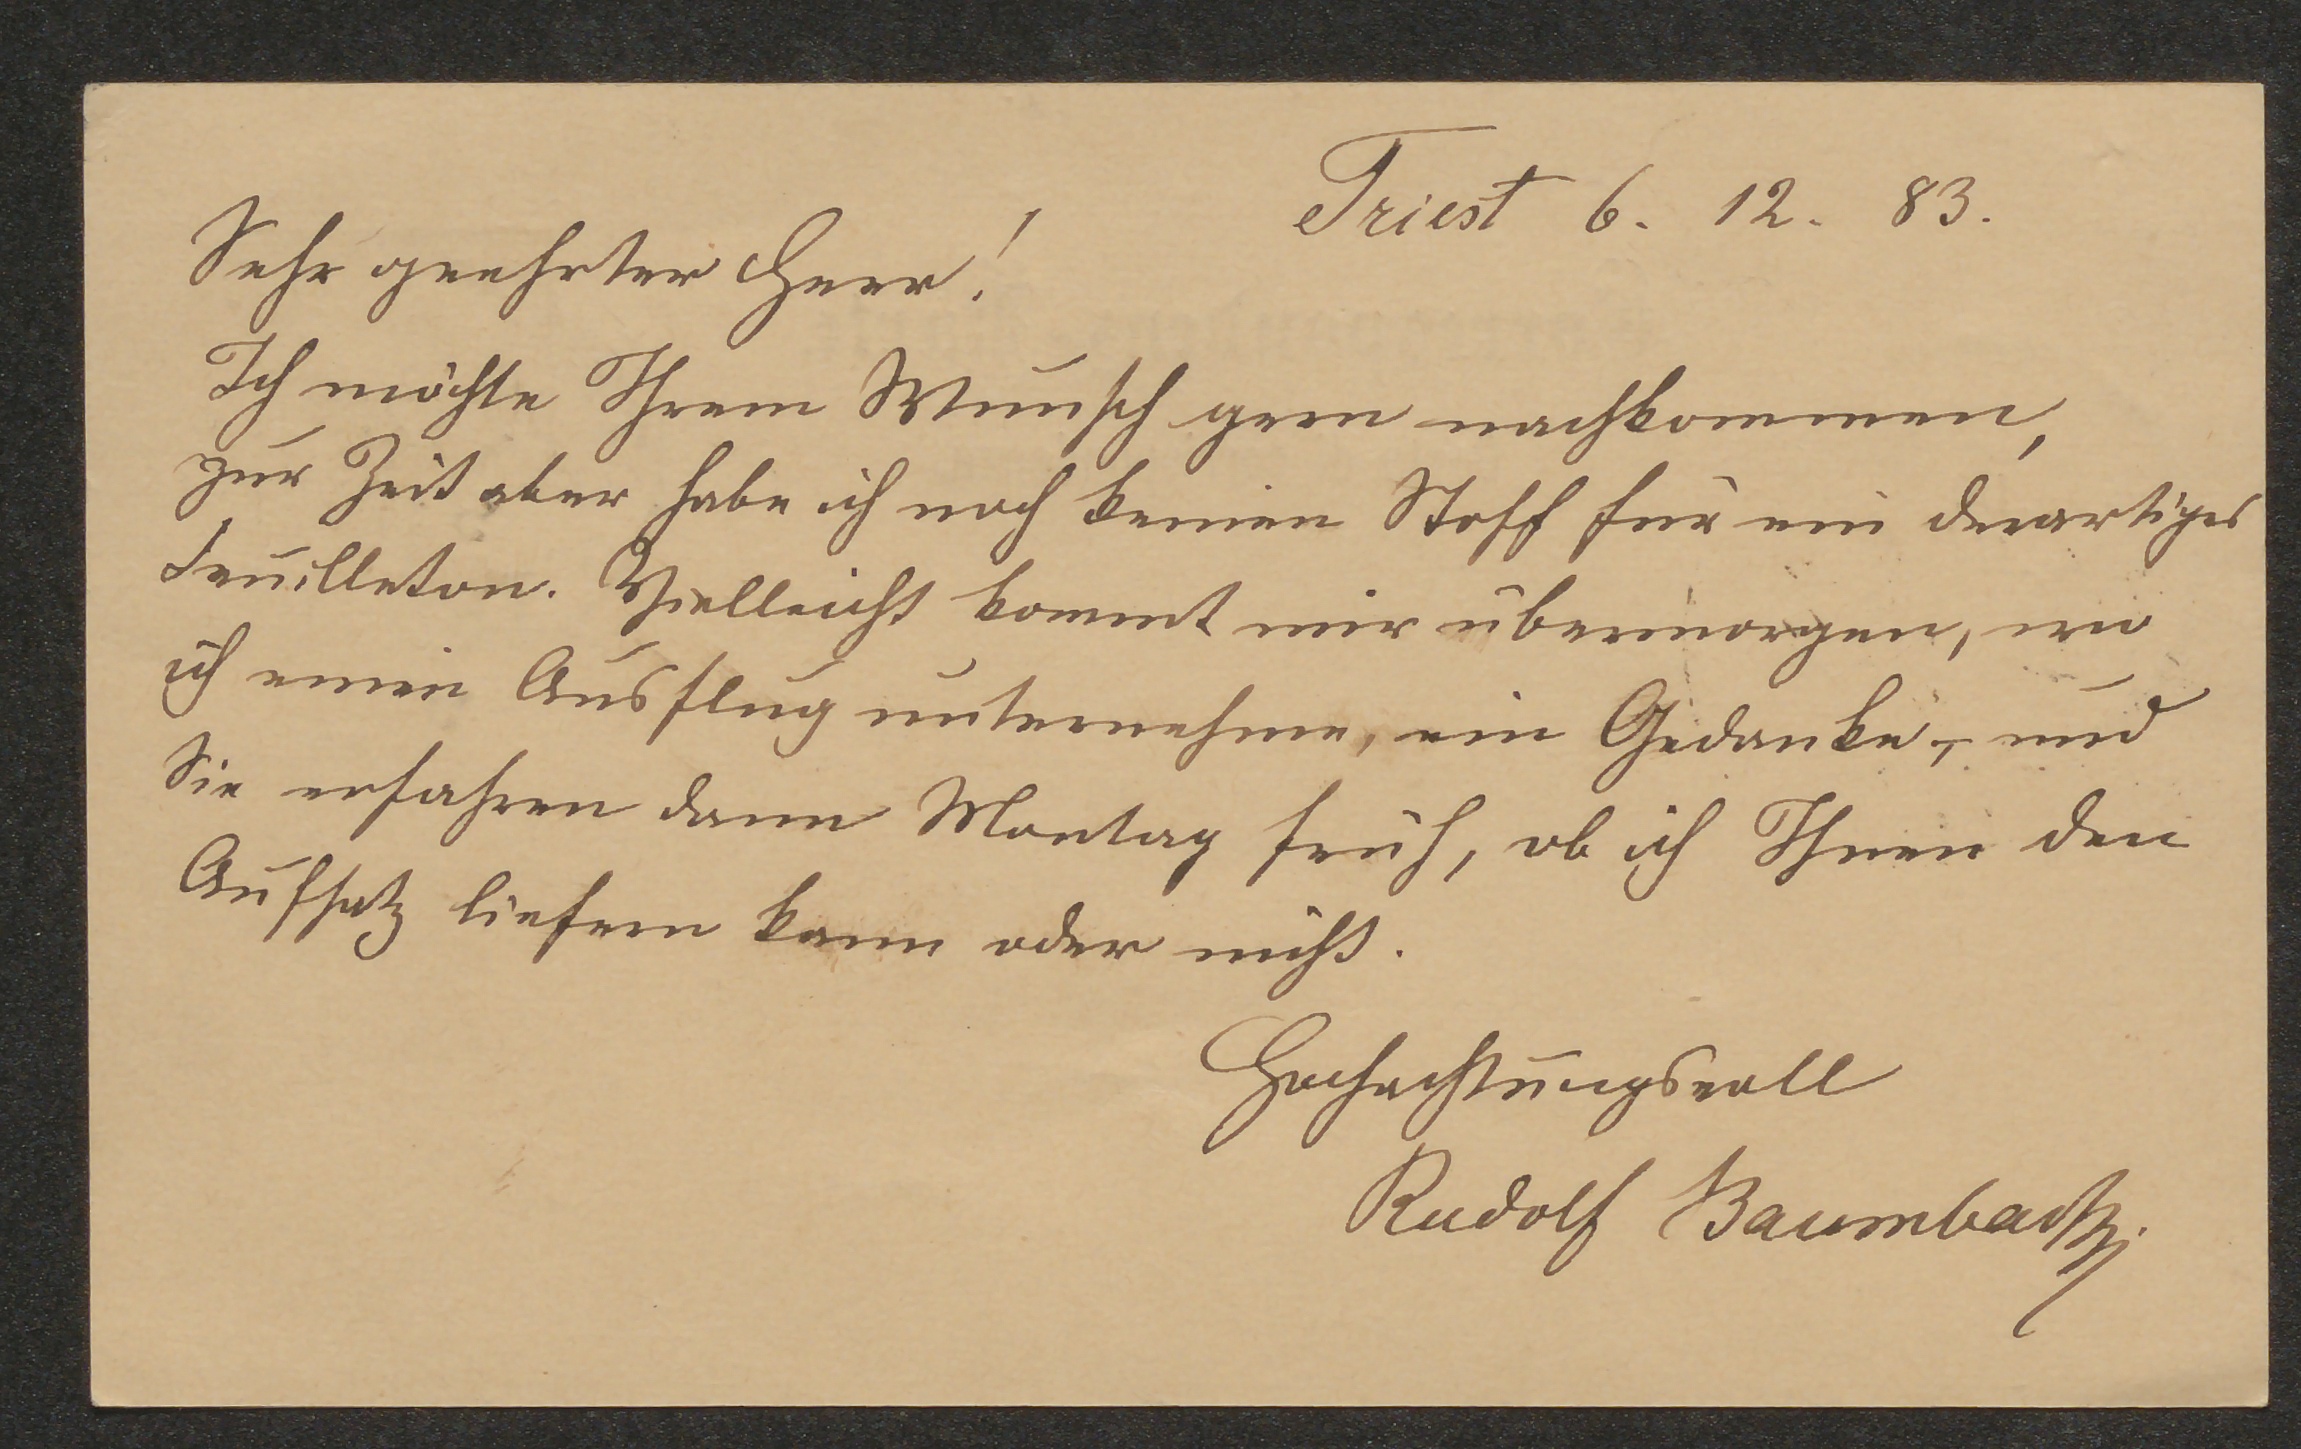 Triest 6. 12. 83.
Sehr geehrter Herr!
Ich möchte Ihrem Wunsch gern nachkommen,
zur Zeit aber habe ich noch keinen Stoff für ein derartiges
Feuilleton. Vielleicht kommt mir übermorgen, wo
ich einen Ausflug unternehme, ein Gedanke, – und
Sie erfahren dann Montag früh, ob ich Ihnen den
Aufsatz liefern kann oder nicht.
Hochachtungsvoll
Rudolf Baumbach.